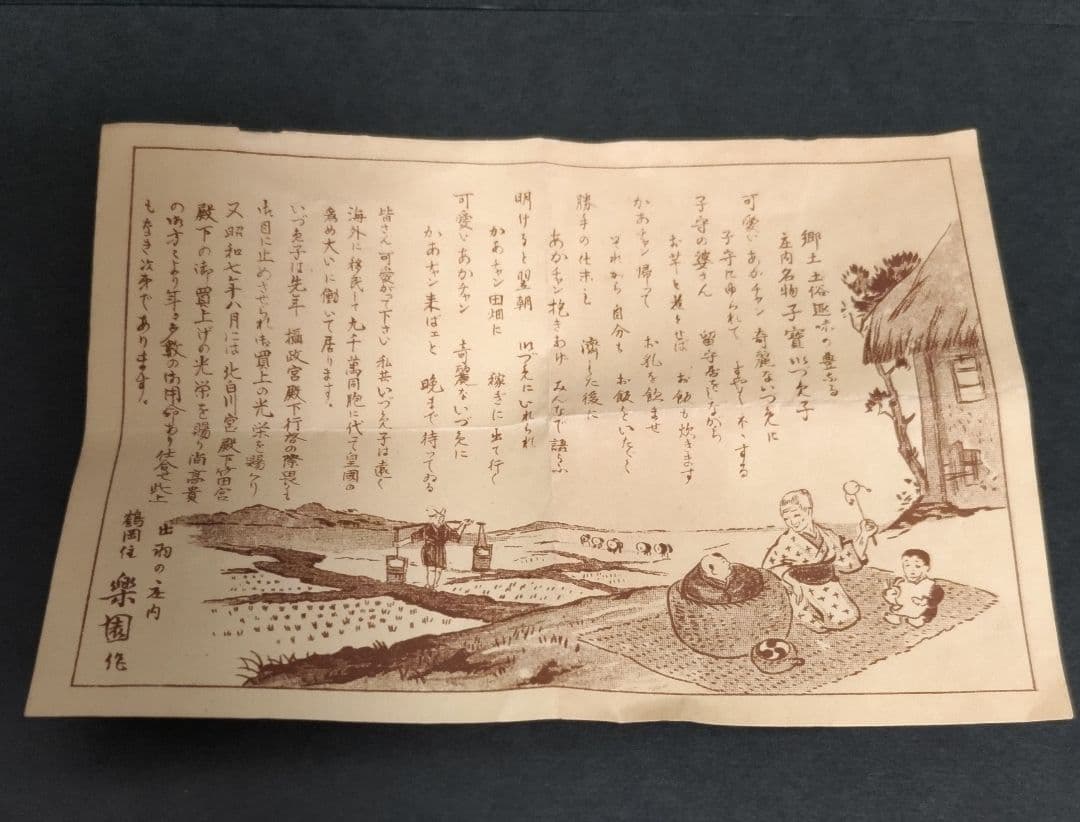 郷土土俗趣味の豊かなる
庄内名物 子寳いづ元子
可愛いあかチャン 奇麗ないづ元に
子守にゆられて すやすやする
子守の婆さん 留守居をしながら
お芋と煮りせば お飯も炊きます
かあチャン帰って お乳を飲ませ
それから自分も お飯をいたゞく
勝手の仕末も 濟した後に
あかチャン抱きわけ みんなで語らふ
明けると翌朝 いづ元にいれられ
かあチャン田畑に 稼ぎに出て行く
可愛いあかチャン 奇麗ないづ元に
かあチャン来ばェと 晩まで待ってゐる
皆さん可愛がって下さい 私共いづ元子は遠く
海外に移民して九千萬同胞に代て皇國の
為め大いに働いて居ります。
いづ元子は先年 攝政宮殿下行啓の際畏くも
御目に止めさせられ御買上の光栄を賜り
又昭和七年八月には北白川宮殿下
殿下の御買上げの光栄を賜り尚高貴
の御方々より年々多数の御用命あり仕合せ此上
もなき次第であります。
出羽の庄内
鶴岡住 樂園作